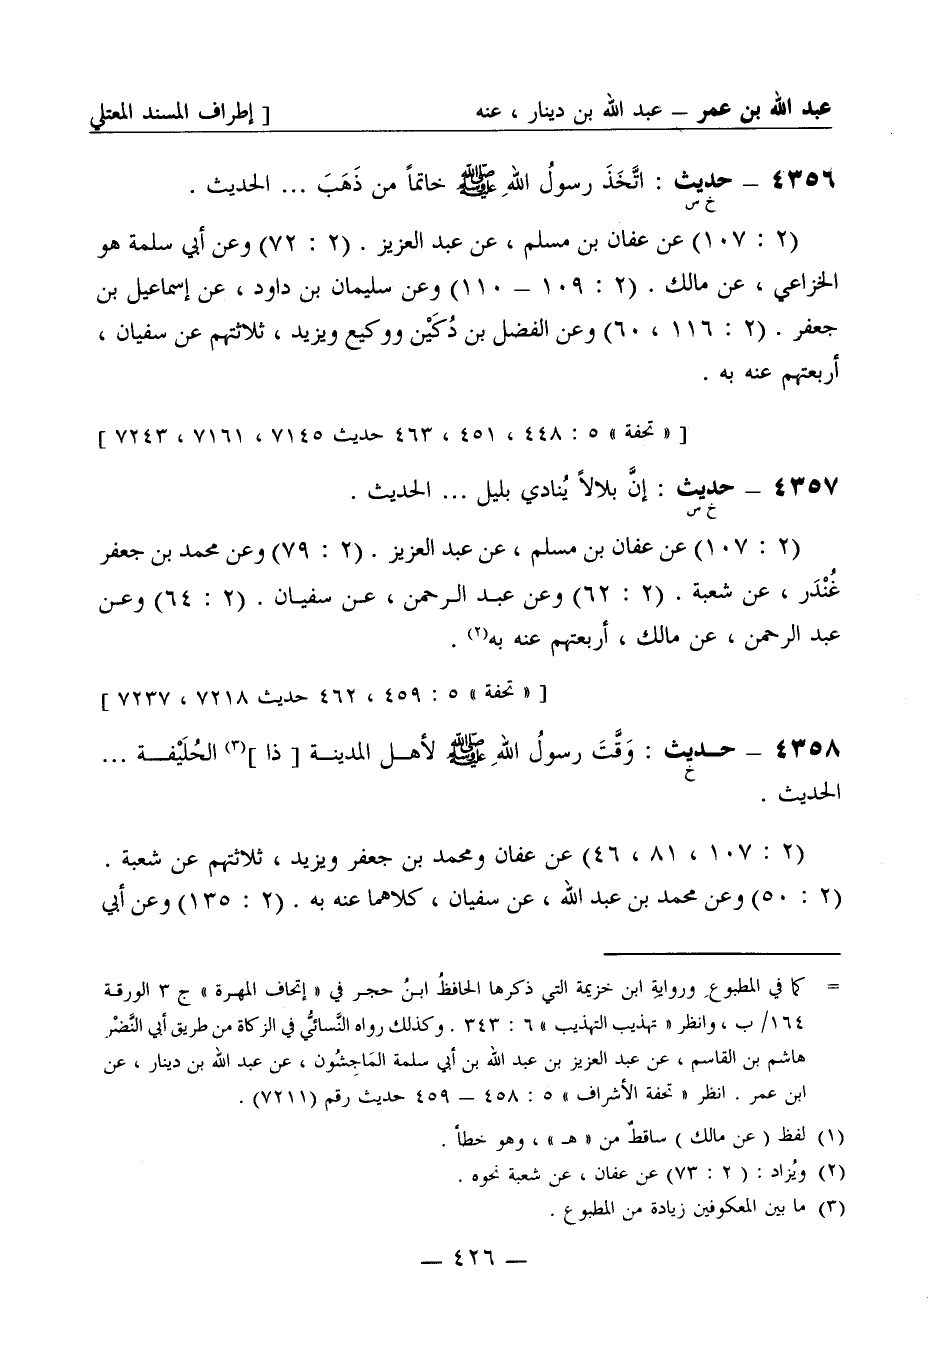 عبد الله بن عمر – عبد الله بن دينار ، عنه [ إطراف المسند المعتلي
٤٣٥٦ – حديث : اتَّخَذَ رسولُ اللهِ ﷺ خاتماً من ذَهَبَ ... الحديث .
خ س
(٢ : ١٠٧) عن عفان بن مسلم ، عن عبد العزيز . (٢ : ٧٢) وعن أبي سلمة هو
الخزاعي ، عن مالك . (٢ : ١٠٩ – ١١٠) وعن سليمان بن داود ، عن إسماعيل بن
جعفر . (٢ : ١١٦ ، ٦٠) وعن الفضل بن دُكَيْن ووكيع ويزيد ، ثلاثتهم عن سفيان ،
أربعتهم عنه به .
[ « تحفة » ٥ : ٤٤٨ ، ٤٥١ ، ٤٦٣ حديث ٧١٤٥ ، ٧١٦١ ، ٧٢٤٣ ]
٤٣٥٧ – حديث : إنَّ بلالاً يُنادي بليل ... الحديث .
خ س
(٢ : ١٠٧) عن عفان بن مسلم ، عن عبد العزيز . (٢ : ٧٩) وعن محمد بن جعفر
غُنْدَر ، عن شعبة . (٢ : ٦٢) وعن عبد الرحمن ، عن سفيان . (٢ : ٦٤) وعن
عبد الرحمن ، عن مالك ، أربعتهم عنه به(٢) .
[ « تحفة » ٥ : ٤٥٩ ، ٤٦٢ حديث ٧٢١٨ ، ٧٢٣٧ ]
٤٣٥٨ – حديث : وَقَّتَ رسولُ اللهِ ﷺ لأهل المدينة [ ذا ](٣) الحُلَيْفة ...
خ
الحديث .
(٢ : ١٠٧ ، ٨١ ، ٤٦) عن عفان ومحمد بن جعفر ويزيد ، ثلاثتهم عن شعبة .
(٢ : ٥٠) وعن محمد بن عبد الله ، عن سفيان ، كلاهما عنه به . (٢ : ١٣٥) وعن أبي
= كما في المطبوع. وروايةِ ابن خزيمة التي ذكرها الحافظُ ابنُ حجر في « إتحاف المهرة » ج ٣ الورقة
١٦٤/ ب ، وانظر « تهذيب التهذيب » ٦ : ٣٤٣ . وكذلك رواه النَّسائيُّ في الزكاة من طريق أبي النَّضْر
هاشم بن القاسم ، عن عبد العزيز بن عبد الله بن أبي سلمة المَاجِشُون ، عن عبد الله بن دينار ، عن
ابن عمر . انظر « تحفة الأشراف » ٥ : ٤٥٨ – ٤٥٩ حديث رقم (٧٢١١) .
(١) لفظ ( عن مالك ) ساقطٌ من « هـ » ، وهو خطأ .
(٢) ويُزاد : ( ٢ : ٧٣) عن عفان ، عن شعبة نحوه .
(٣) ما بين المعكوفين زيادة من المطبوع .
– ٤٢٦ –